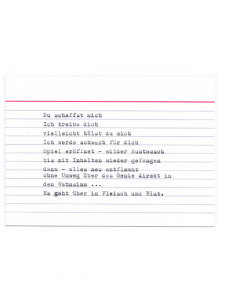 Du schaffst mich
Ich treibe dich
vielleicht hälst du mich
Ich werde schwach für dich
Spiel eröffnet - wilder Austausch
bis mit Inhalten wieder gefangen
dann - alles neu entflammt
ohne Umweg über das Genie direkt in
den Wahnsinn ...
Es geht über in Fleisch und Blut.